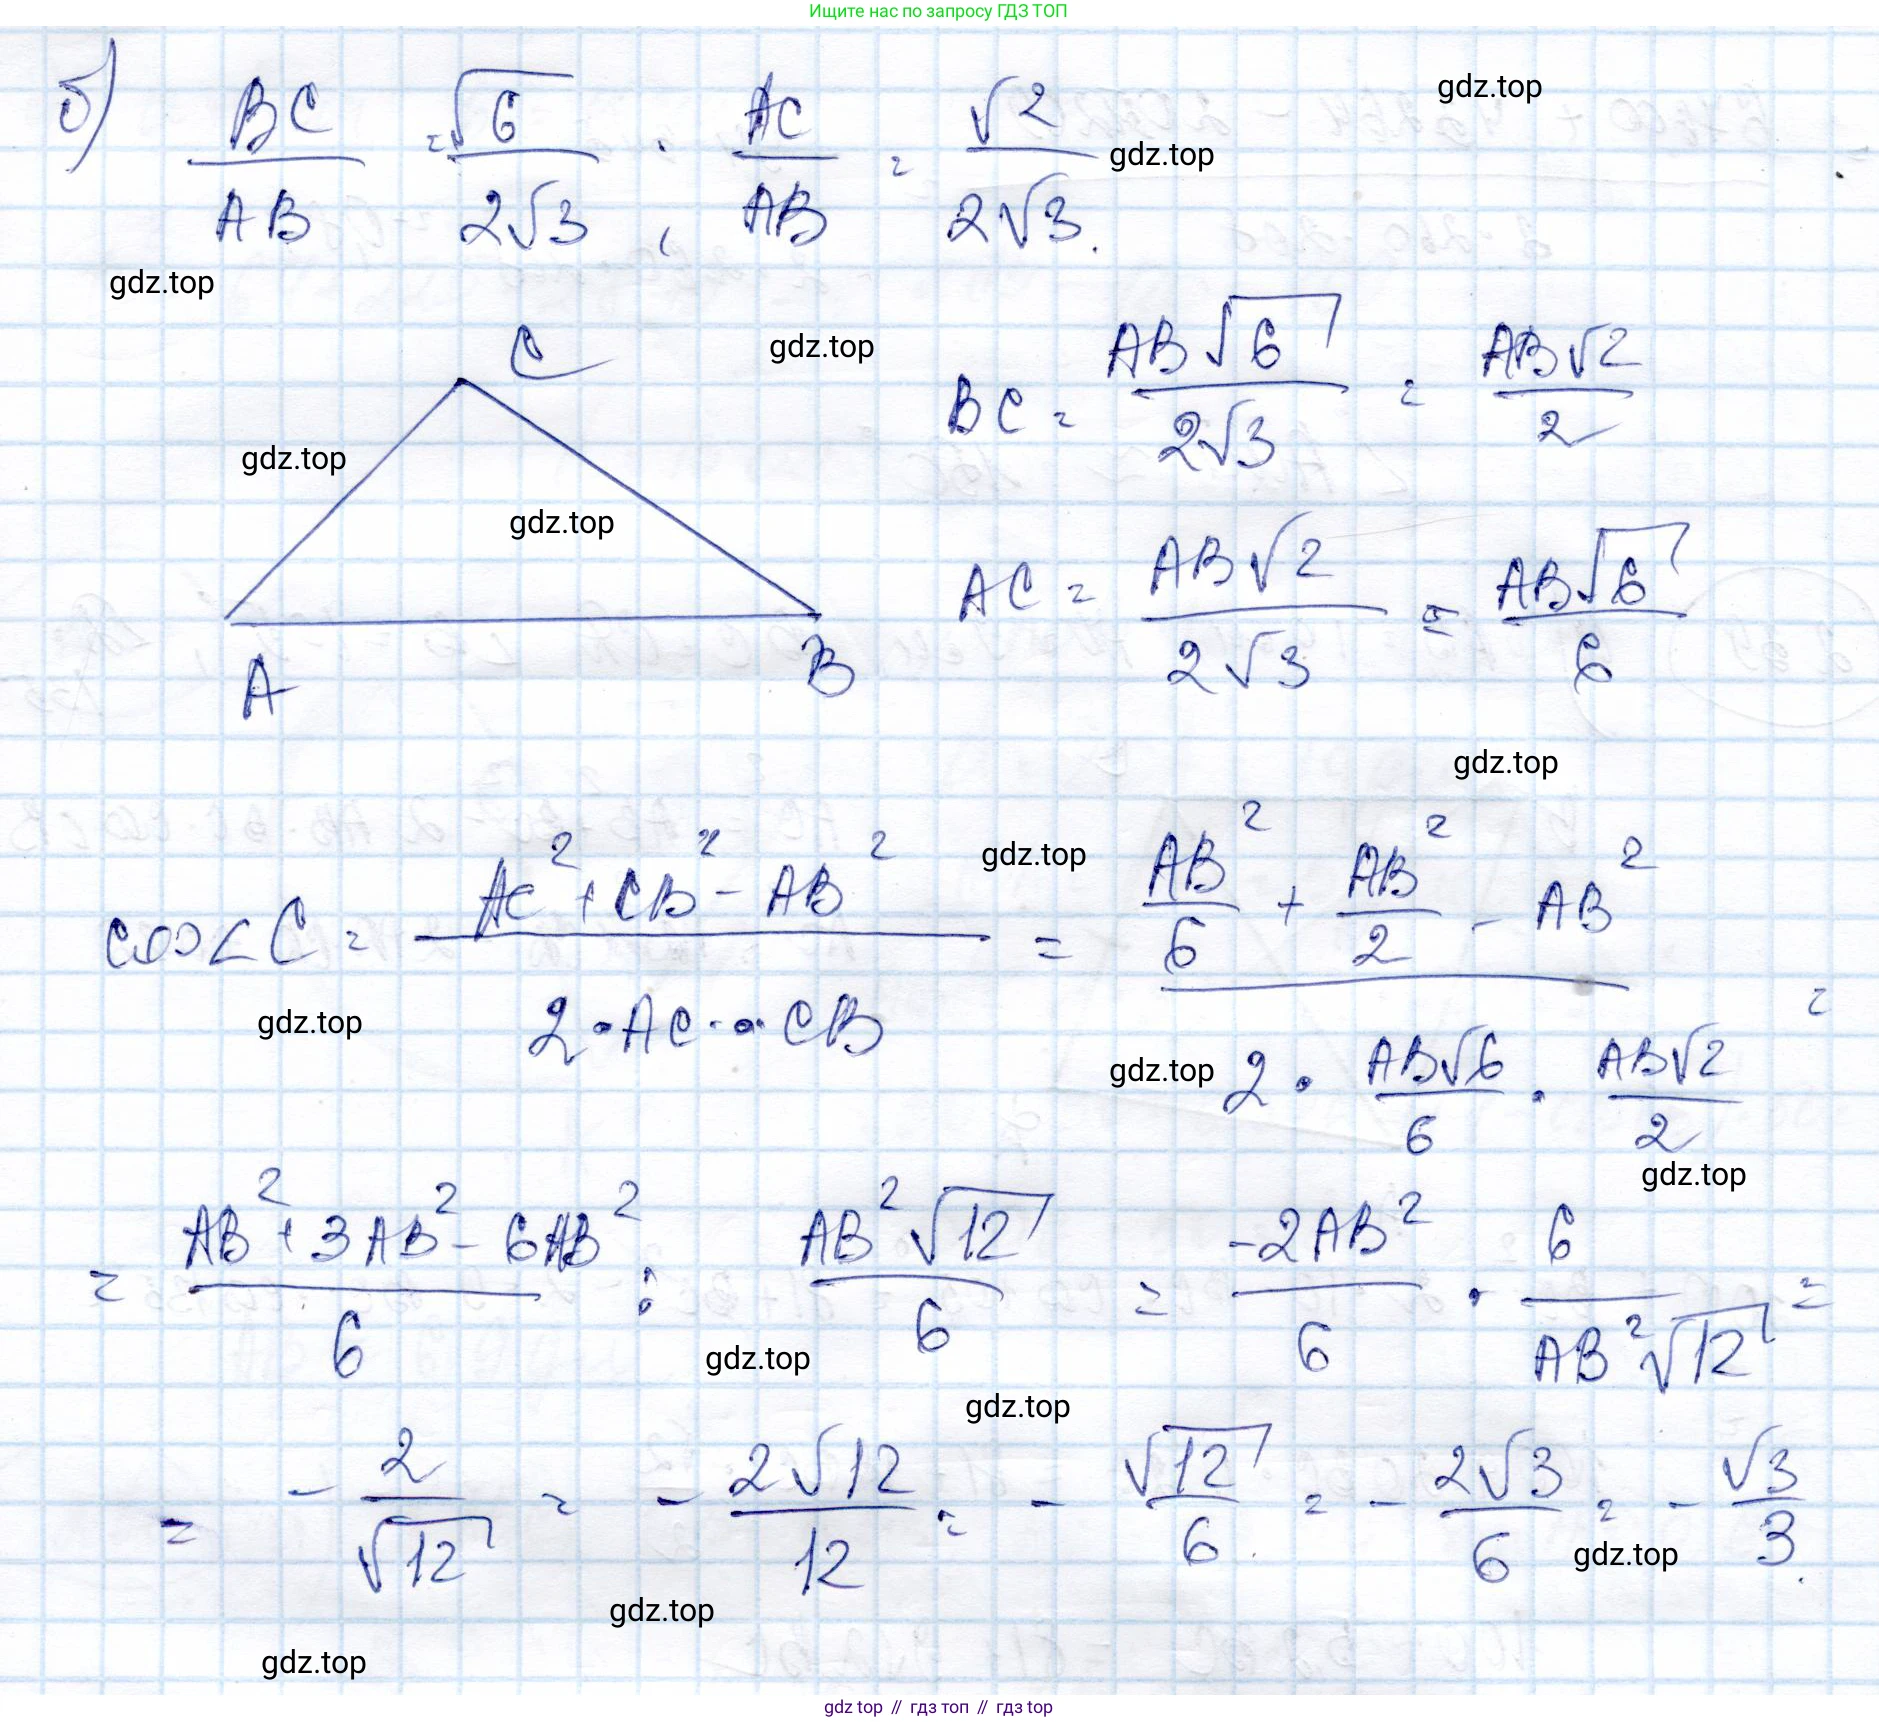 Ищите нас по запросу ГДЗ ТОП
б) BC/AB = √6/(2√3); AC/AB = √2/(2√3).
gdz.top
gdz.top
gdz.top
C
gdz.top
BC = AB√6/(2√3) = AB√2/2
gdz.top
gdz.top
AC = AB√2/(2√3) = AB√6/6
A
B
gdz.top
gdz.top
cos∠C = (AC² + CB² - AB²)/(2·AC·CB) = (AB²/6 + AB²/2 - AB²)/(2·AB√6/6·AB√2/2) =
gdz.top
gdz.top
gdz.top
= (AB² + 3AB² - 6AB²)/6 : AB²√12/6 = -2AB²/6 · 6/(AB²√12) =
gdz.top
gdz.top
= -2/√12 = -2√12/12 = -√12/6 = -2√3/6 = -√3/3.
gdz.top
gdz.top
gdz.top
gdz top // гдз топ // гдз top